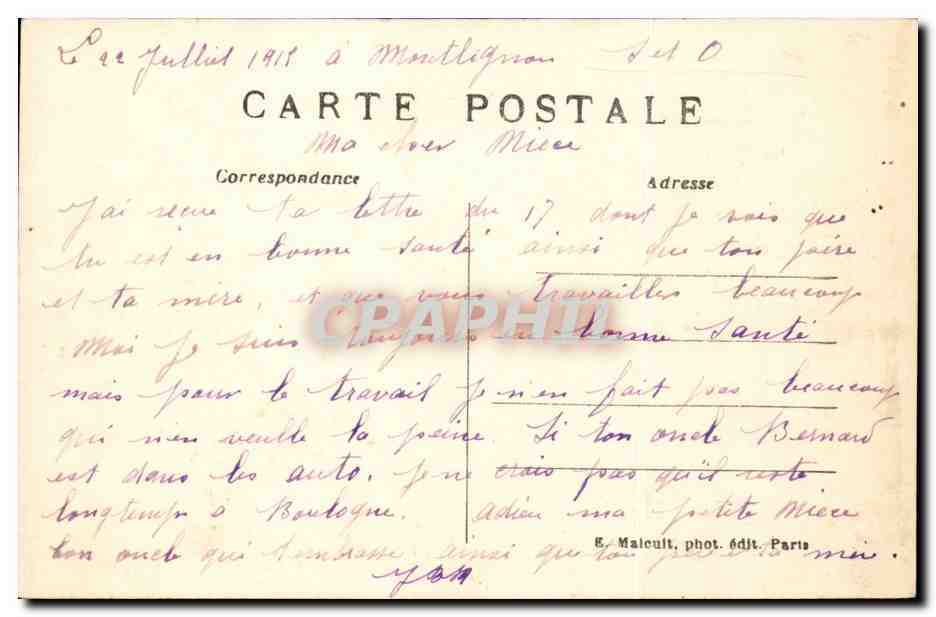 Le 22 Julliet 1915 à Montlignon S et O
CARTE POSTALE
Ma cher Niece
Correspondance
Adresse
J'ai recue ta lettre du 17 dont je vois que
tu est en bonne santé ainsi que ton père
et ta mère, et que vous travailles beaucoup
CPAPHIL
Moi je suis toujours en bonne santé
mais pour le travail je n'en fait pas beaucoup
qui n'en veulle la peine. Si ton oncle Bernard
est dans les auto, je ne crois pas qu'il reste
longtemps à Boulogne. adieu ma petite Niece
ton oncle qui t'embrasse ainsi que ton père et ta mère.
E. Malcuit, phot. édit. Paris